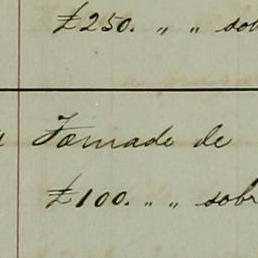 £250. " " sob
Tomada de
£100. " " sobr